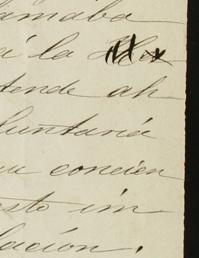 amaba
á la
tende ah
luntaria
su concien
esto im
lación.